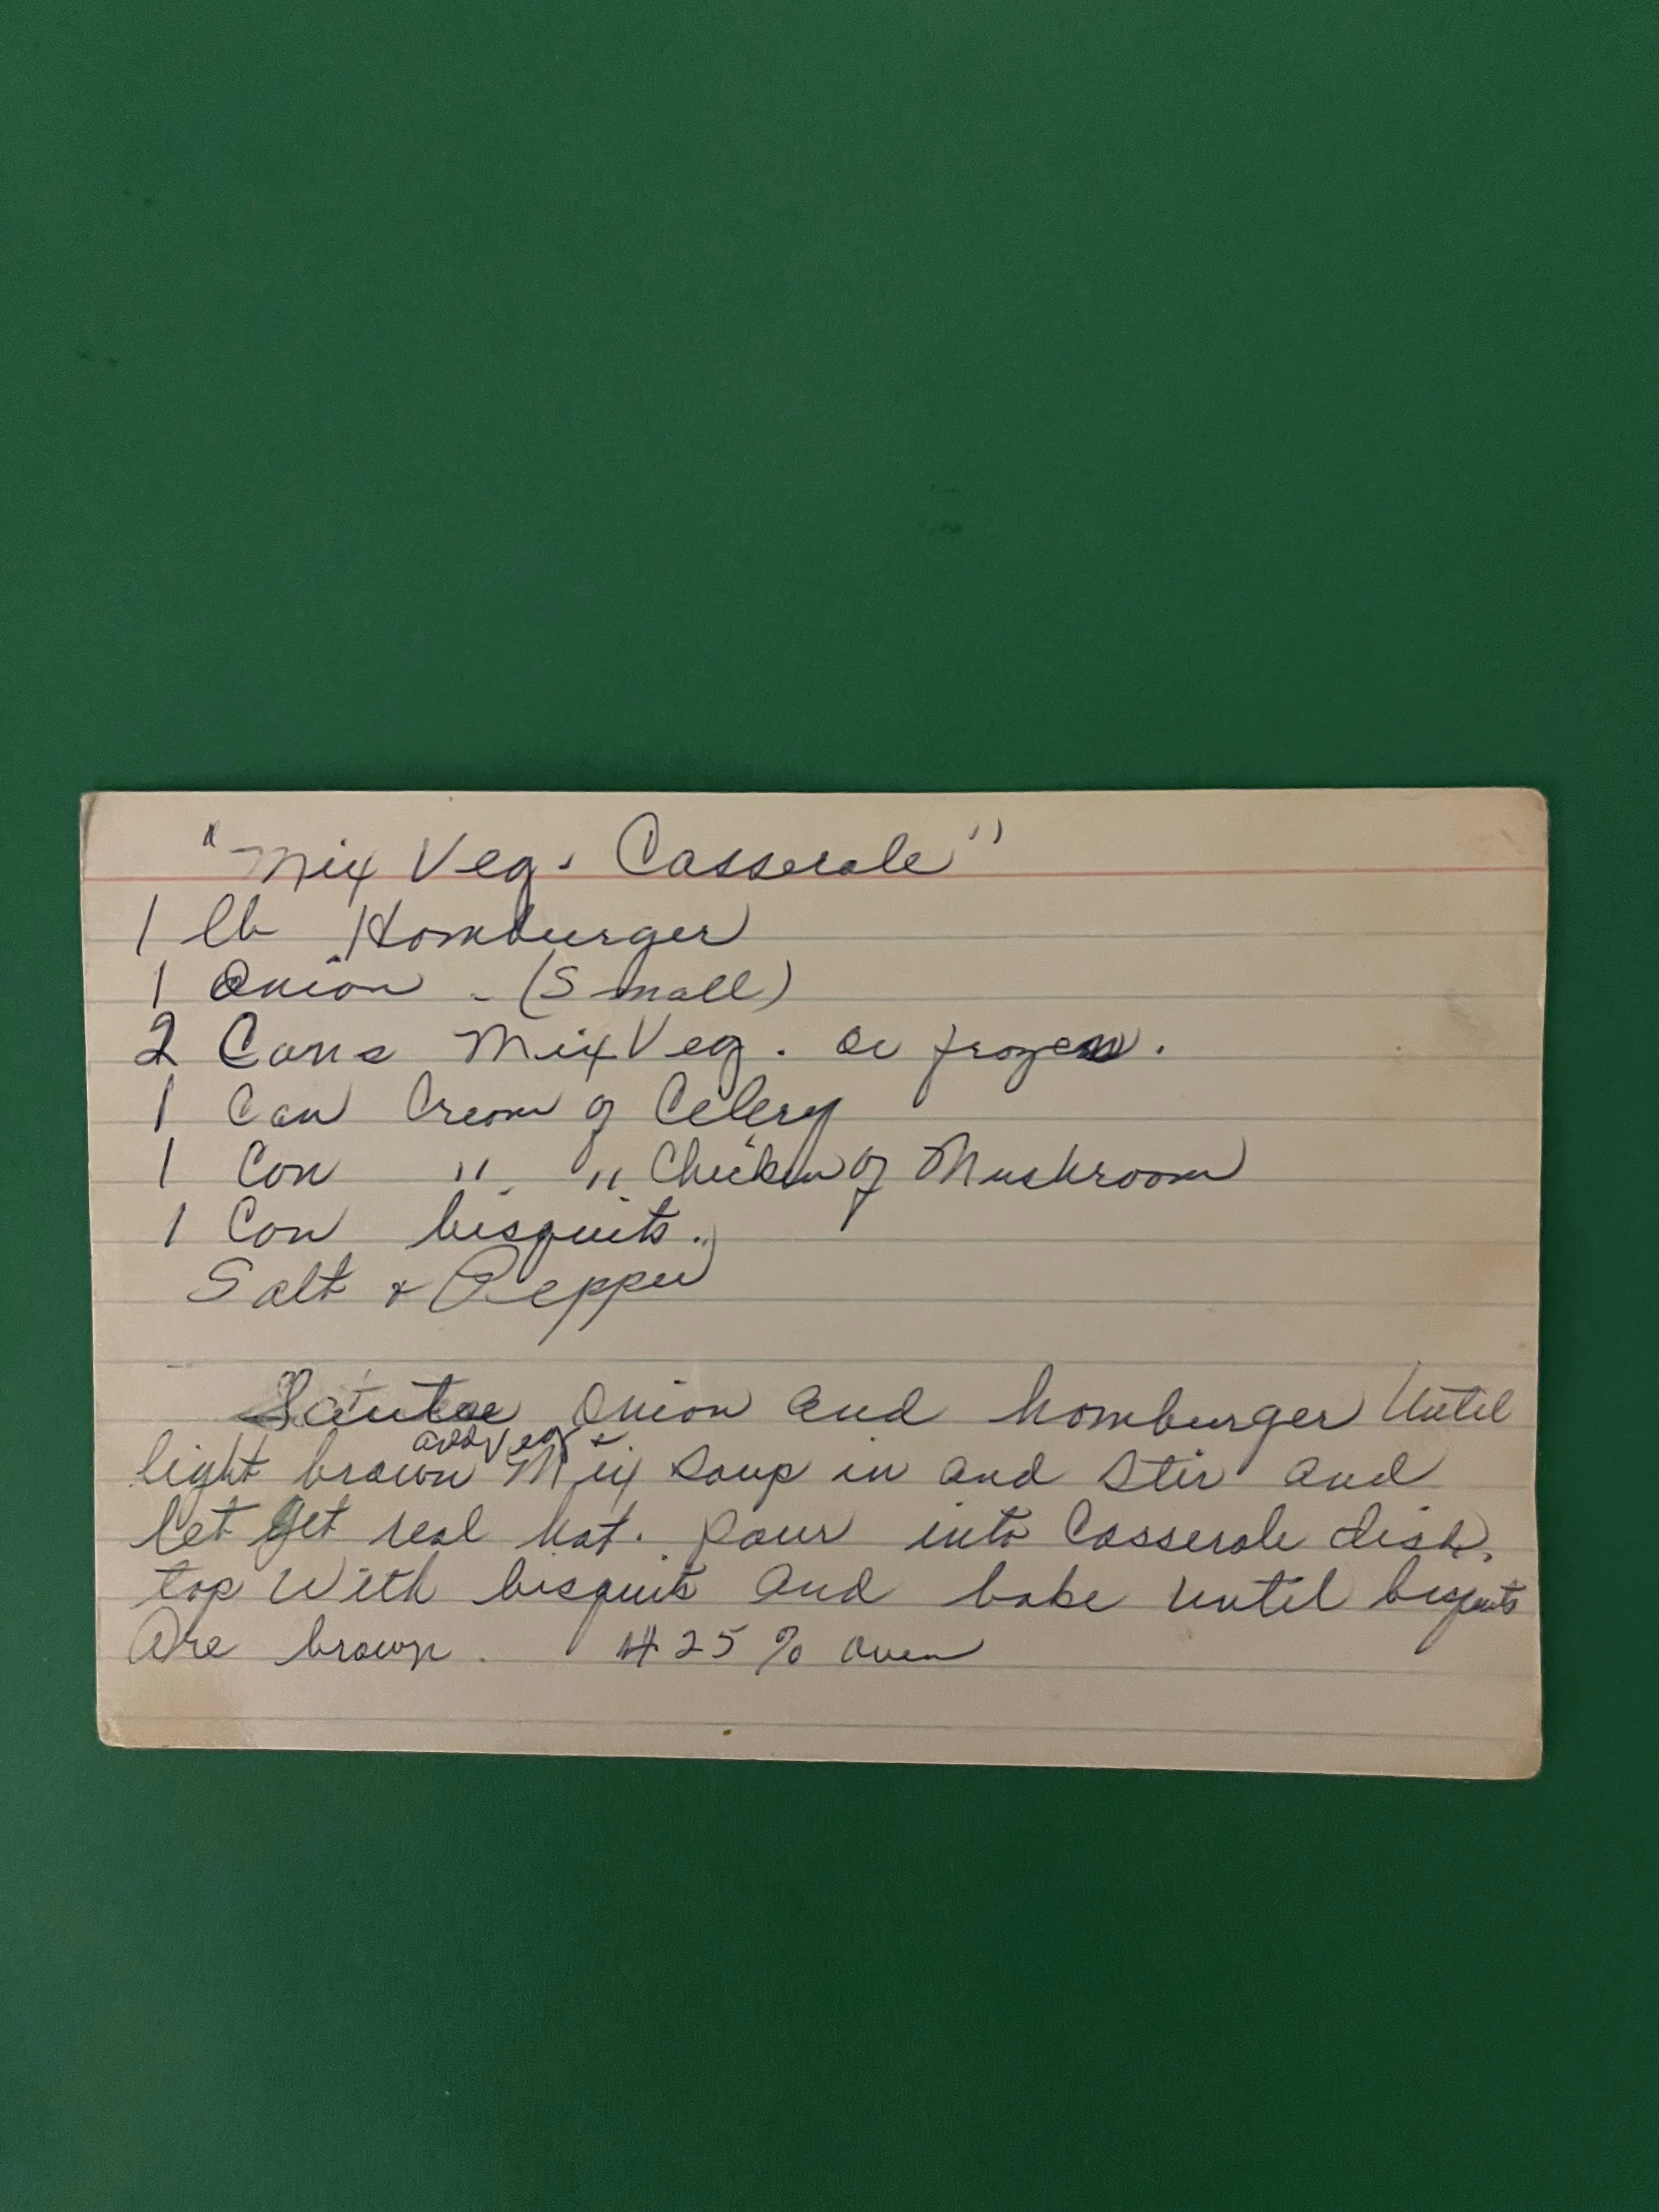 "Mix Veg. Casserole"
1 lb Hamburger
1 Onion - (Small)
2 Cans Mix Veg. or frozen.
1 Can Cream of Celery
1 Can " " Chicken of Mushroom
1 Can bisquits.
Salt & Pepper
Sautee Onion and hamburger Until
add Veg &
light brown Mix soup in and Stir and
let get real hot. Pour into Casserole dish,
top With bisquits and bake until bisquits
Are brown. 425% oven